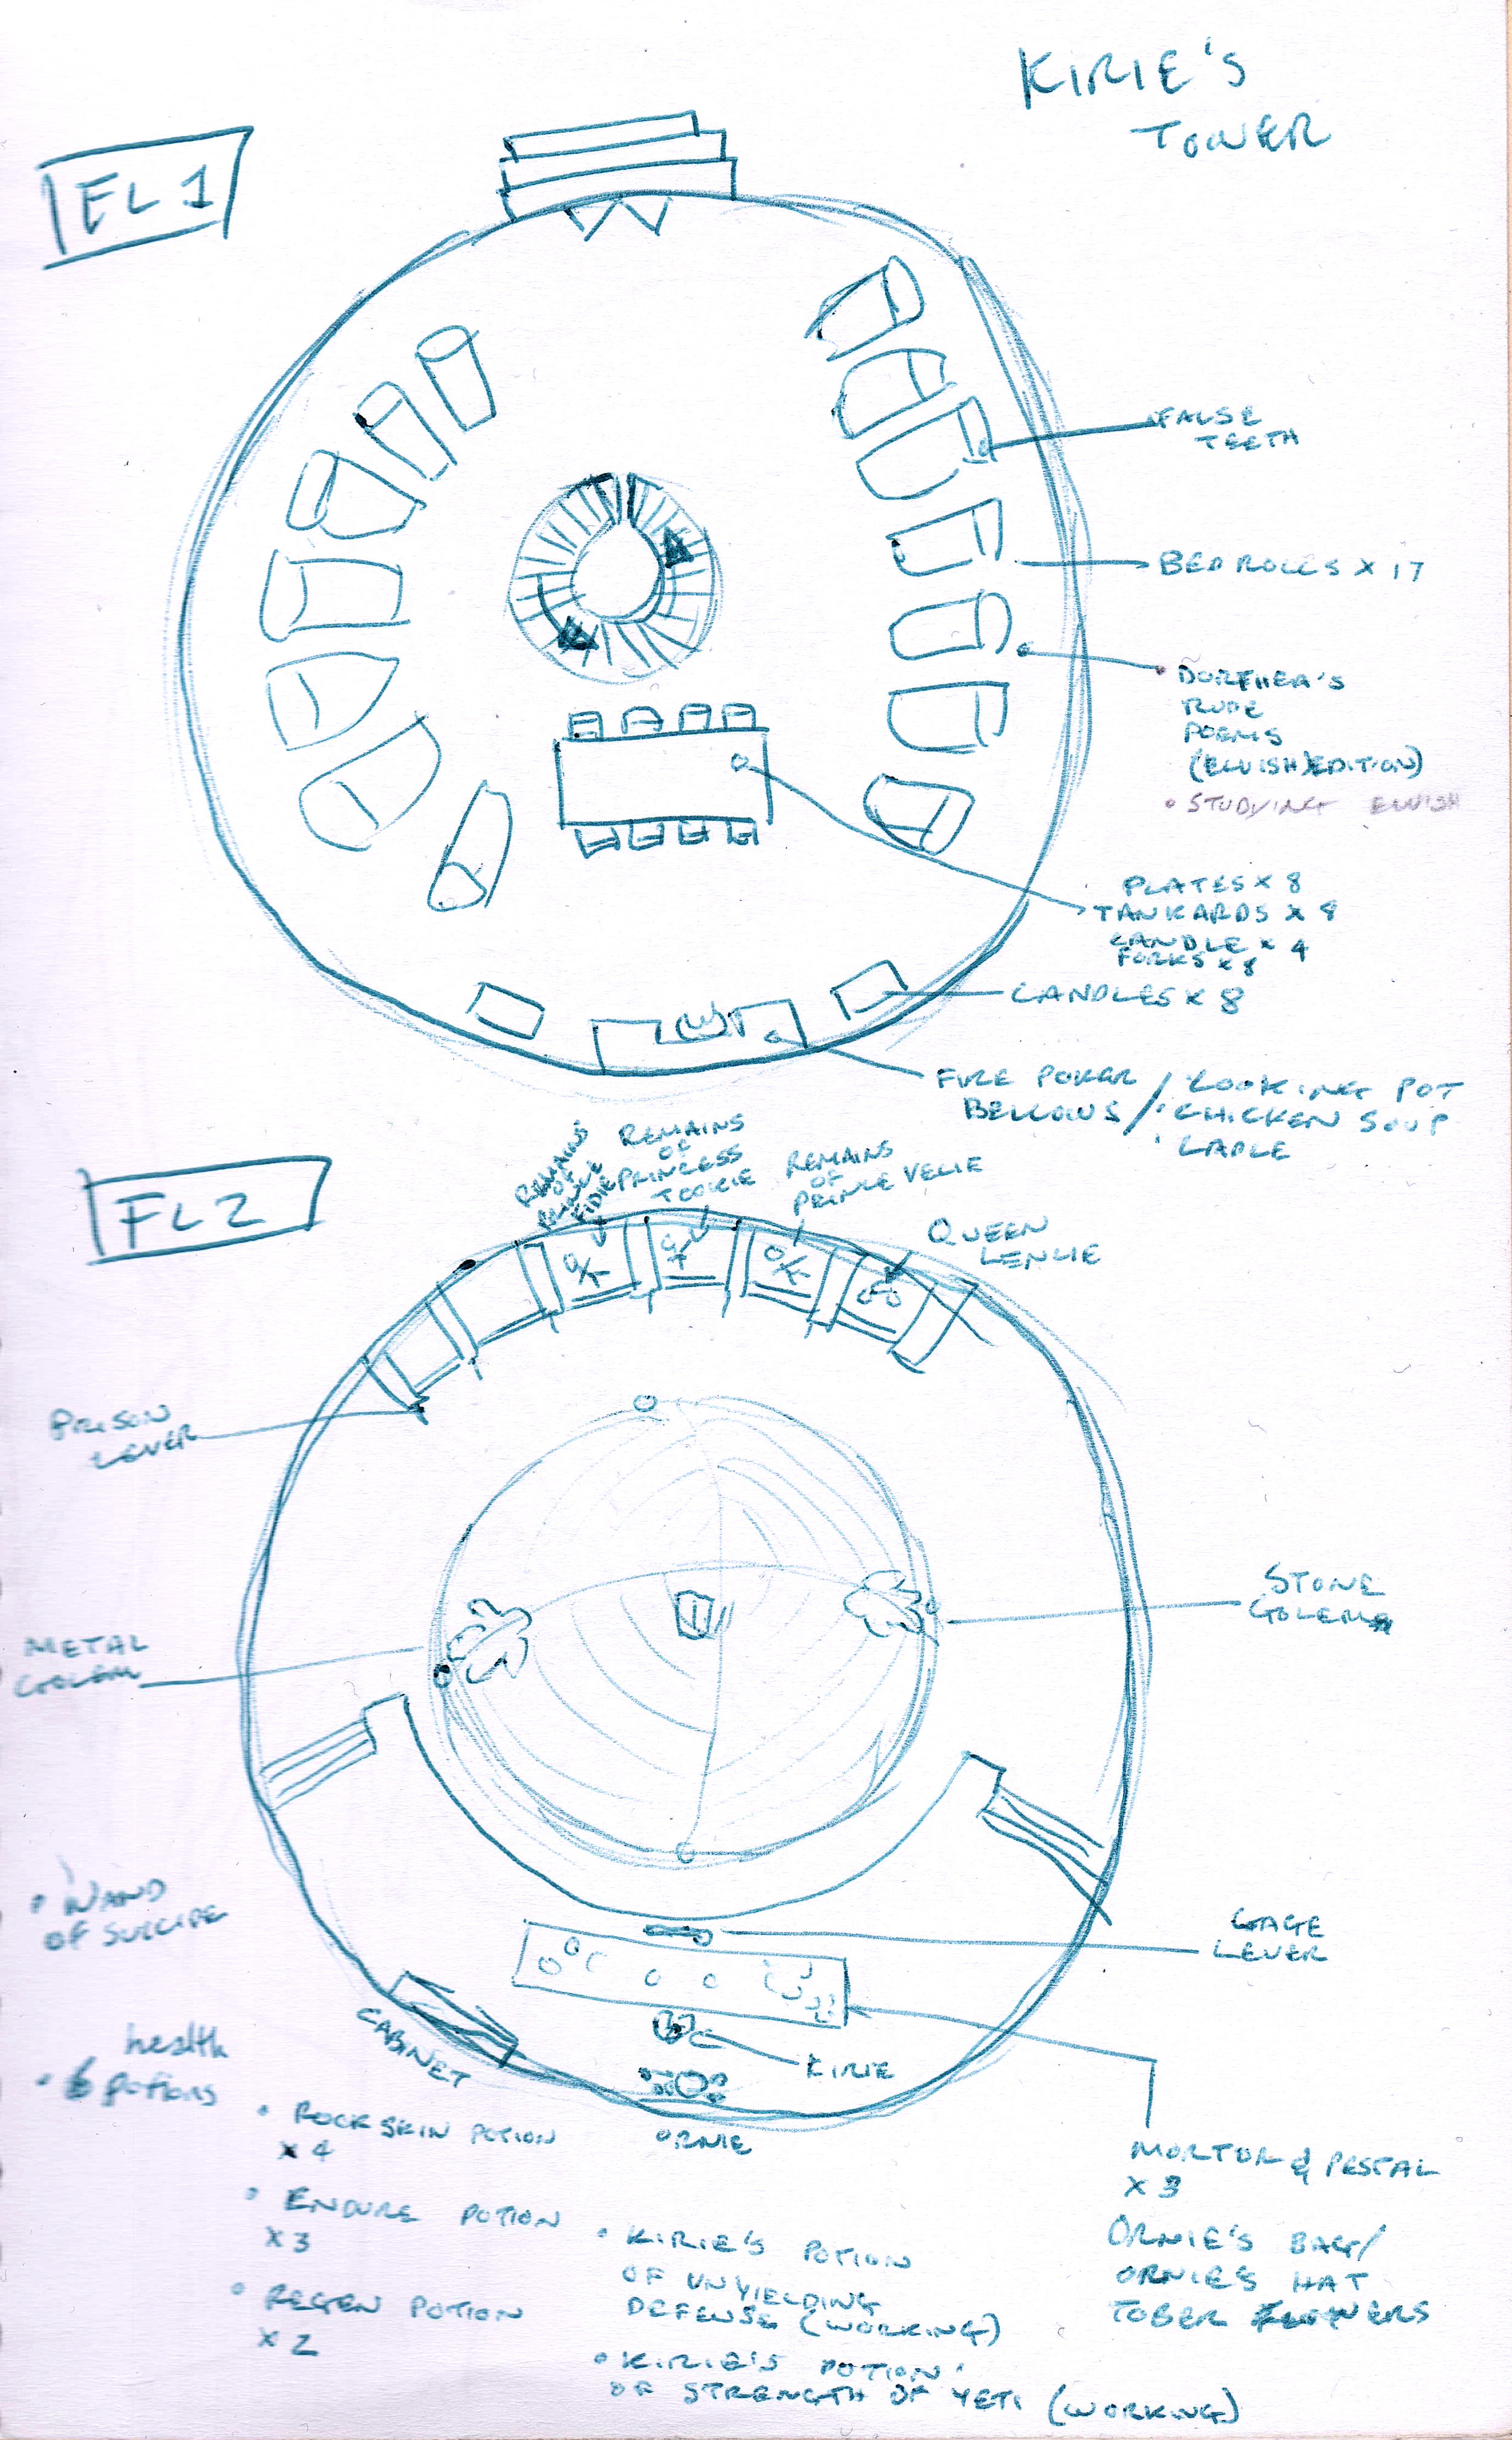 KIRIE'S
TOWER
FL 1
FALSE
TEETH
BEDROLLS X 17
DORTHEA'S
RUDE
POEMS
(ELVISH EDITION)
• STUDYING ELVISH
PLATES X 8
TANKARDS X 8
CANDLE X 4
FORKS X 8
CANDLES X 8
FIRE POKER / COOKING POT
BELLOWS / CHICKEN SOUP
LADLE
FL 2
REMAINS
OF
REMAINS
OF
PRINCESS
TOOKIE
REMAINS
OF
PRINCE VELIE
QUEEN
LENLIE
PRISON
LEVER
STONE
GOLEM
METAL
GOLEM
• WAND
OF SUICIDE
CAGE
LEVER
CABINET
KIRIE
ORNIE
health
• 6 potions
• ROCKSKIN POTION
X 4
• ENDURE POTION
X 3
• REGEN POTION
X 2
• KIRIE'S POTION
OF UNYIELDING
DEFENSE (WORKING)
• KIRIE'S POTION
OF STRENGTH OF YETI (WORKING)
MORTOR & PESTAL
X 3
ORNIE'S BAG/
ORNIE'S HAT
TOBER FLOWERS